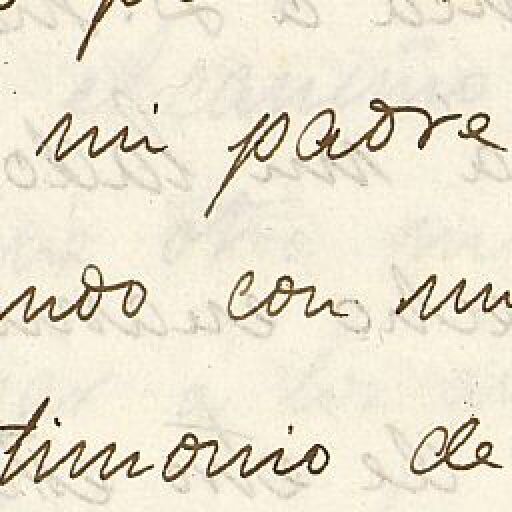 mi padre
ndo con mu
timonio de